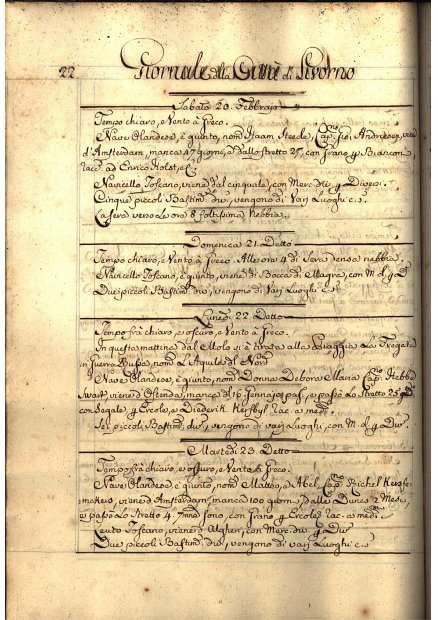 22
Giornale della Città di Livorno
Sabato 20. Febbrajo
Tempo chiaro, e Vento à Greco.
Nave Olandese, è giunto, nom.
d'Amsterdam, manca 47 giorni, e dallo stretto 25, con Grano p Bianconi,
racc. ad Enrico
Navicello Toscano, viene dal cinquale, con Merc. div. p Diversi.
Cinque piccoli Bastim. div., vengono di Varj Luoghi e
Ca sera verso le ore 8 foltissima Nebbia.
Domenica 21. Detto
Tempo chiaro, e Vento à Greco. Alle ore 4 di Sera densa nebbia.
Navicello Toscano, è giunto, viene di Bocca di Magra, con M. d. p D.
Due piccoli Bastim. div., vengono di Varj Luoghi e
Lunedì 22. Detto
Tempo frà chiaro, e oscuro, e Vento à Greco.
In questa mattina dal Molo si è tirata alla Spiaggia La Fregata
in Guerra Russa, nom. L'Aquila del Nord
Nave Olandese, è giunto, nom. Donna Debora Maria Cap.
Swart, viene d'Ostenda, manca dì 16 Gennajo pas., e passò Lo Stretto 25
con Segale p Ercole, e Diederik
Sei piccoli Bastim. div., vengono di varj Luoghi, con M. d. p Div.
Martedì 23. Detto
Tempo frà chiaro, e oscuro, e Vento à Greco.
Nave Olandese, è giunto, nom. Matteo, e Abel, Cap. Michel
viene d'Amsterdam, manca 100 giorni, dalle Dunes 2 Mesi,
e passò Lo Stretto 4. sono, con Grano p Ercole rac. a med.
Leuto Toscano, viene d'Algheri, con Merc. div. p Div.
Due piccoli Bastim. div., vengono di varj Luoghi e